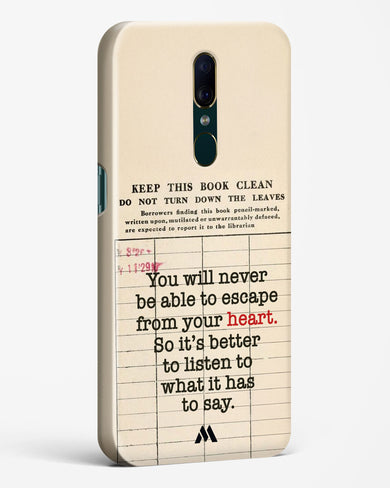 KEEP THIS BOOK CLEAN
DO NOT TURN DOWN THE LEAVES
Borrowers finding this book pencil-marked,
written upon, mutilated or unwarrantably defaced,
are expected to report it to the librarian
You will never
be able to escape
from your heart.
So it's better
to listen to
what it has
to say.